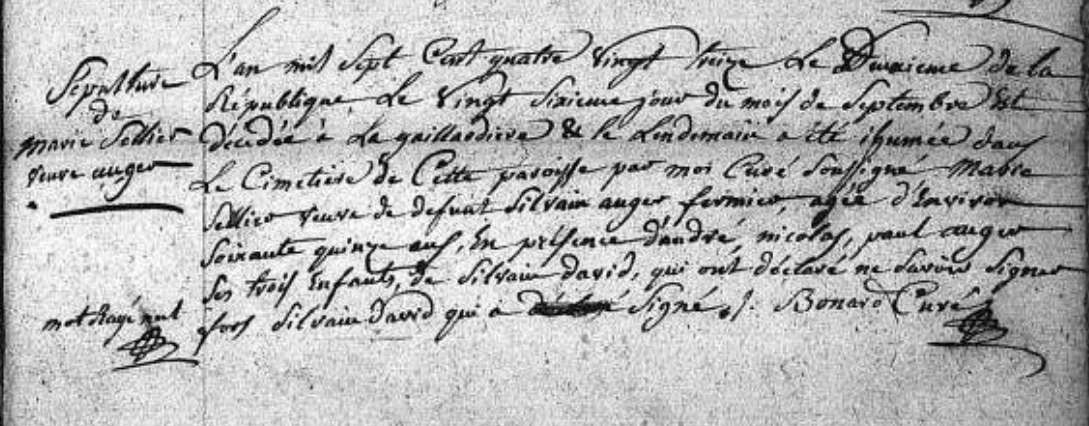 Sepulture
de
marie Sellier
veuve auger
L'an mil Sept Cent quatre Vingt treize Le Deuxieme de la
République, Le Vingt Sixieme jour du mois de Septembre Est
décédée à La gaillardiere & le Lendemain a été ihumée dans
Le Cimetiere de Cette paroisse par moi Curé Soussigné Marie
Sellier veuve de defunt Silvain auger fermier, agée d'Environ
Soixante quinze ans, En présence d'andré, nicolas, paul auger
Ses trois Enfants, de Silvain david, qui ont déclaré ne Savoir Signer
fors Silvain david qui a Signé. J. Bonard Curé
mot Rayé nul